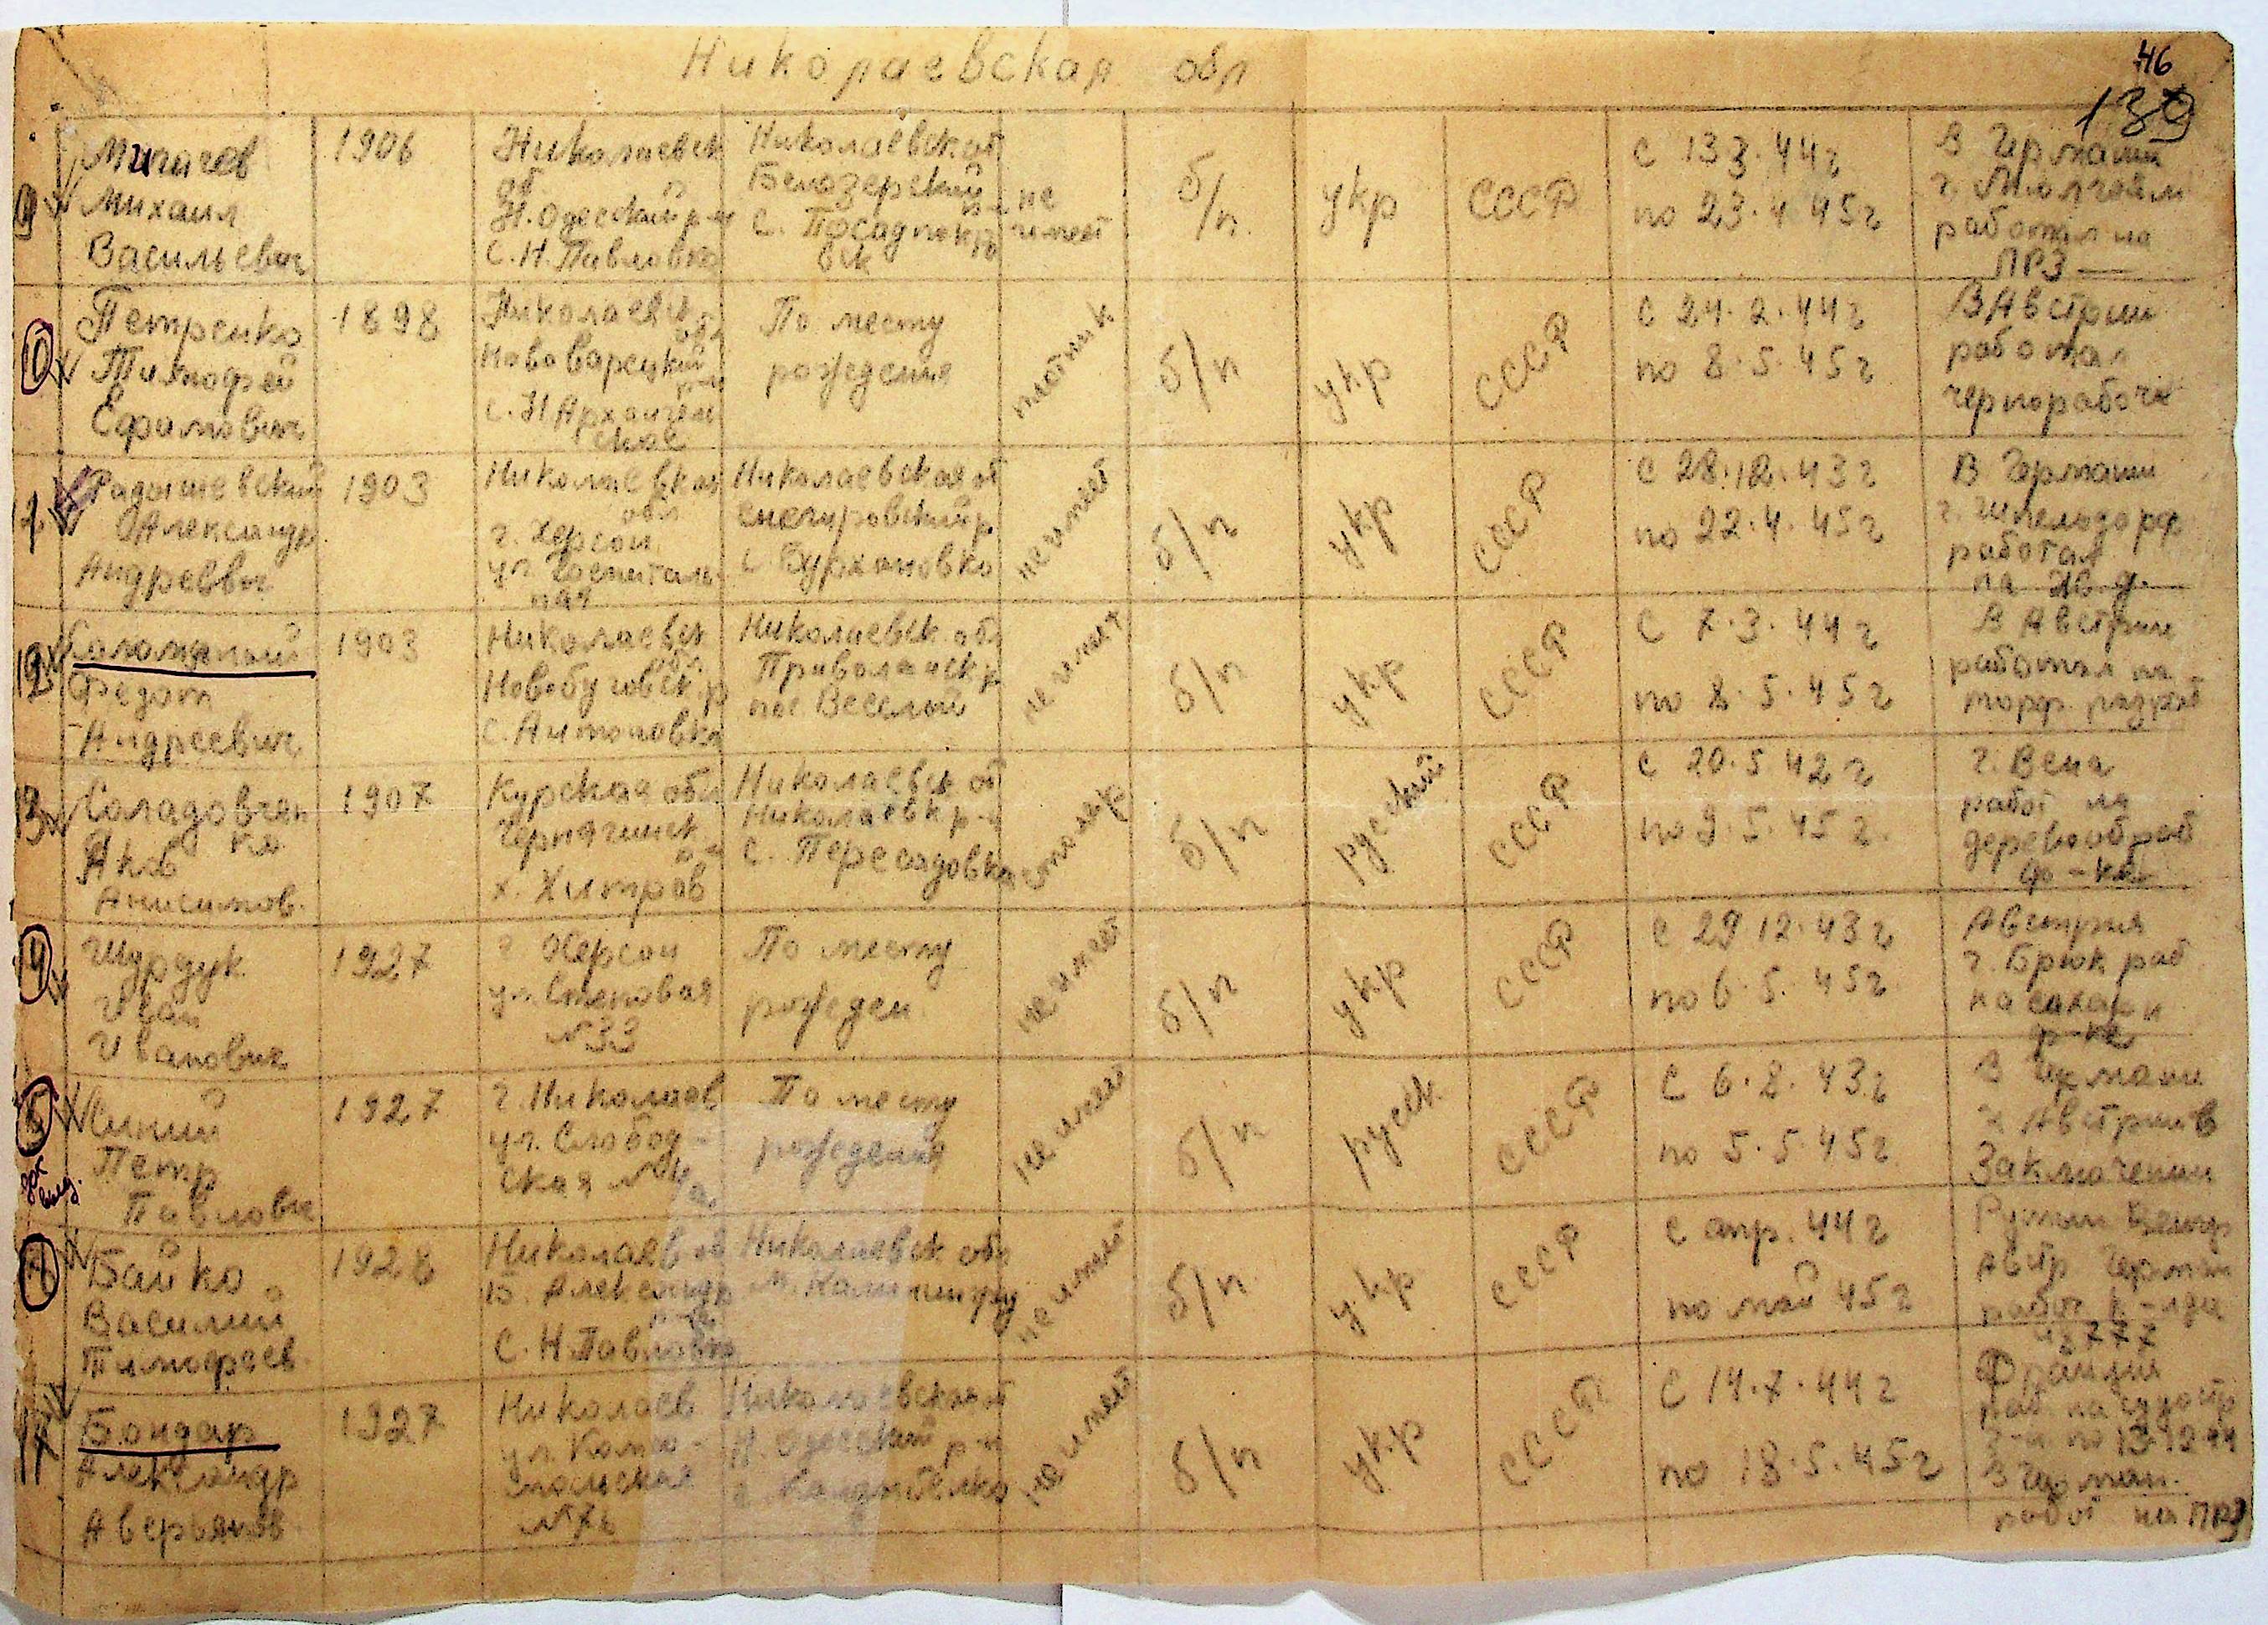 Николаевская обл
46
139
9
Мигачев
Михаил
Васильевич
1906
Николаевск
об.
Н. Одесский р-н
С. Н. Павловка
Николаевск об
Белозерский
р-н
С. Посадпокр
вск
не
имеет
б/п.
укр
СССР
С 13 3. 44 г
по 23. 4 45 г
В Германии
работал на
ПРЗ —
10
Петренко
Тимофей
Ефамович
1898
Николаевск
обл
Нововарецкий
р-н
с. Н Архангель
ское
По месту
рождения
плотник
б/п
укр
СССР
С 24. 2. 44 г
по 8. 5. 45 г
В Австрии
работал
чернорабочи
Радышевский
Александр
Андреевич
1903
Николаевская
обл
г. Херсон
ул. Госпиталь-
ная
Николаевская об
снегировский р
с. Бурхановко
не имеет
б/п
укр
СССР
С 28. 12. 43 г
по 22. 4. 45 г
В Германии
работал
на ж. д.
12
Федот
Андреевич
1903
Николаевск
обл.
Новобуговск. р
с. Антоновка
Николаевск. обл
Привольнск р
пос. Веселый
не имеет
б/п
укр
СССР
С 7. 3. 44 г
по 8. 5. 45 г
В Австрии
работал на
торф. разраб
13
Соладовчен
ко
Яков
Анисимов.
1907
Курская обл
р-н
х. Хитров
Николаевск об
Николаевк р-н
С. Пересадовка
столяр
б/п
русский
СССР
С 20. 5 42 г
по 9. 5. 45 г.
г. Вена
работ на
деревообраб
ф-ке
14
Шурдук
Иван
Иванович
1927
г Херсон
ул. Степовая
№33
По месту
рожден
не имеет
б/п
укр
СССР
С 29 12. 43 г
по 6. 5. 45 г
Австрия
г. Брюк раб
на сахарн
ф-ке
15
Синий
Петр
Павлович
1927
г. Николаев
ул. Слобод-
ская №
По месту
рождения
не имеет
б/п
русск.
СССР
С 6. 2. 43 г
по 5. 5. 45 г
В Германии
и Австрии в
Заключении
Байко
Василий
Тимофеев.
1928
Николаев об
Б. Александр
р-н
С. Н. Павловка
Николаевск обл
не имеет
б/п
укр
СССР
С апр. 44 г
по май 45 г
Румын Венгр
Австр Герман
777
17
Бондар
Александр
Аверьянов
1927
Николаев
ул. Комсо-
мольская
№
Николаевской
Н. Одесский р-н
не имеет
б/п
укр
СССР
С 14. 7. 44 г
по 18. 5. 45 г
Франция
раб. на судостр
з-и по 13.12 44
В Герман.
работ на ПРЗ